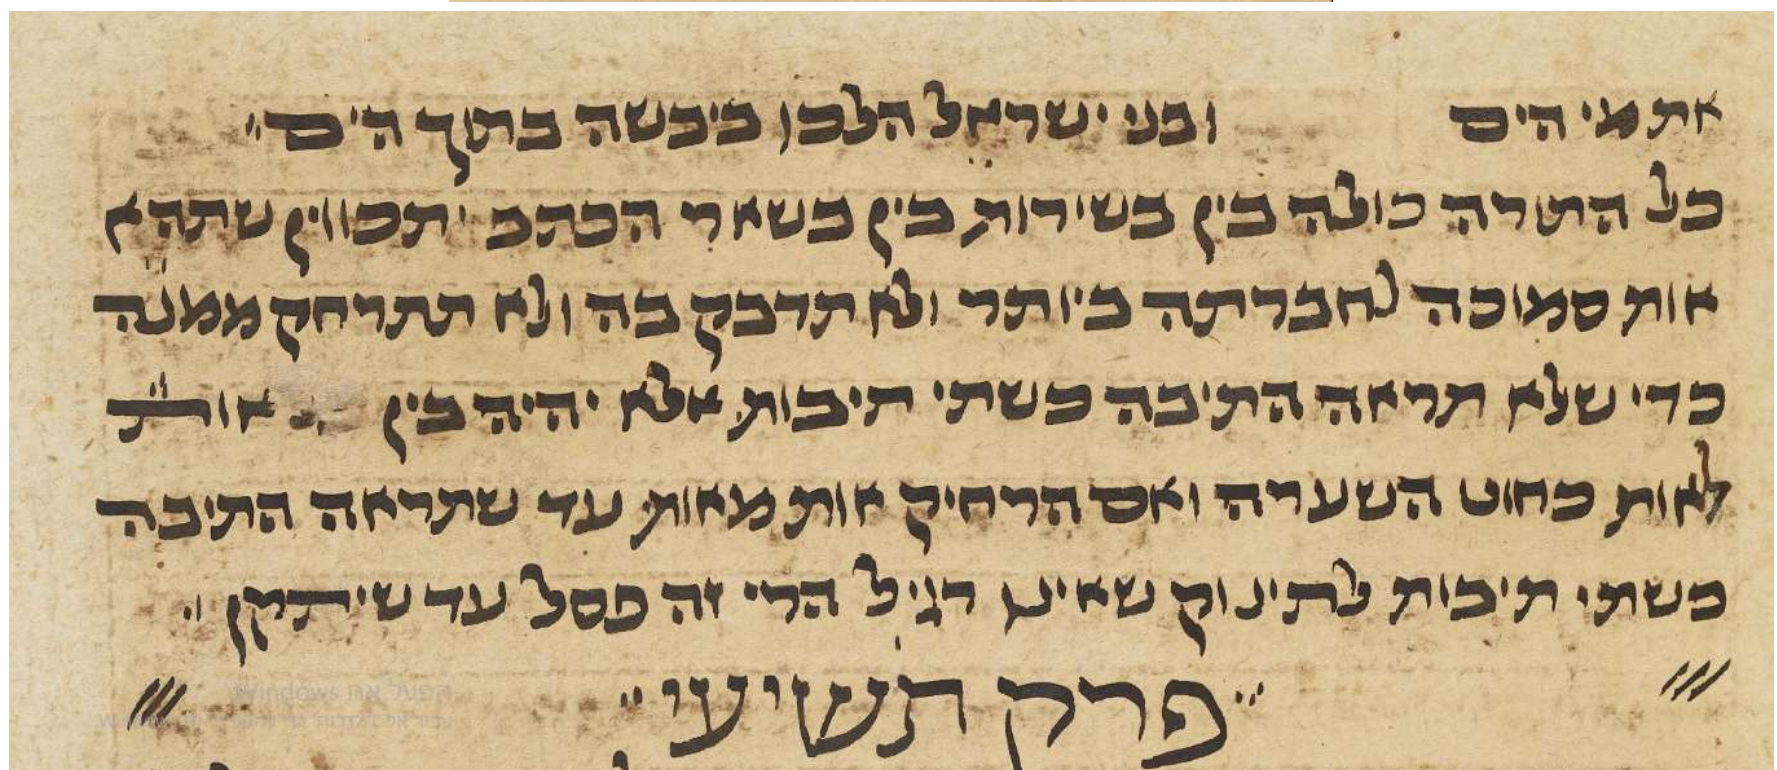 את מי הים ובני ישראל הלכו ביבשה בתוך הים
כל התורה כולה בין בשירות בין בשאר הכתב יתכווין שתהא
אות סמוכה לחברתה ביותר ולא תדבק בה ולא תתרחק ממנה
כדי שלא תראה התיבה כשתי תיבות אלא יהיה בין אות
לאות כחוט השערה ואם הרחיק אות מאות עד שתראה התיבה
כשתי תיבות לתינוק שאינו רגיל הרי זה פסל עד שיתקן
פרק תשיעי
הפעל את Windows